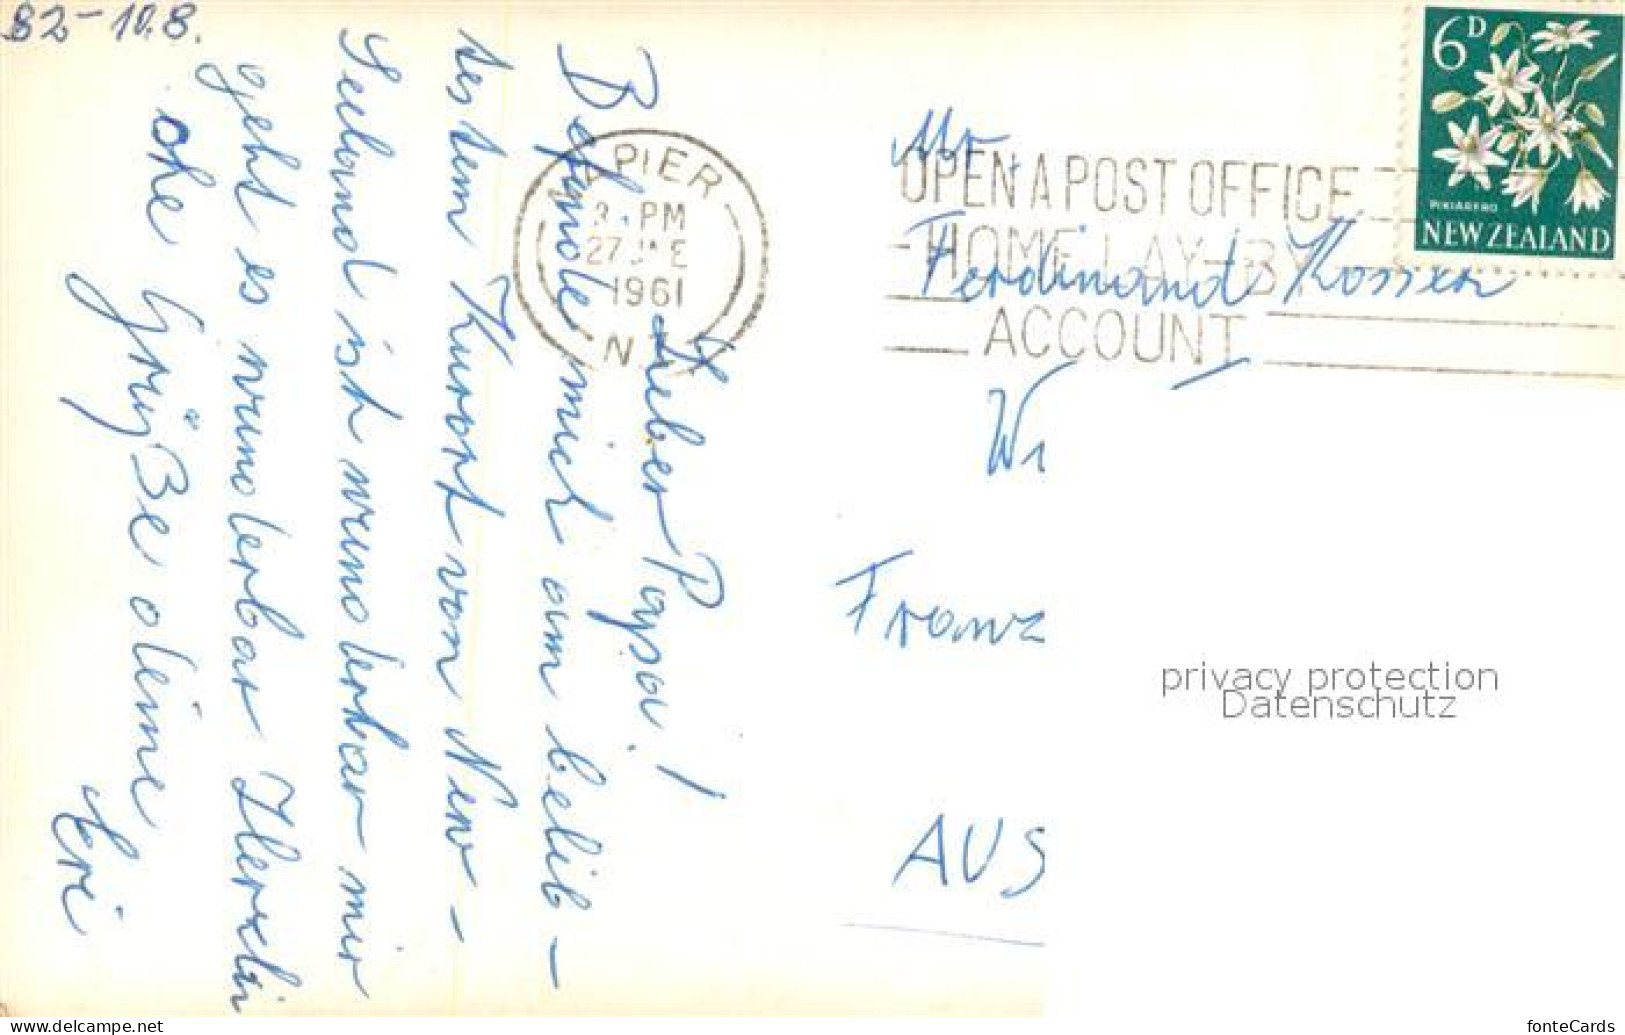 B2-10.8.
Lieber Papa!
Befinde mich am belieb-
testem Kurort von Neu-
Seeland ist wunderbar mir
geht es wunderbar Herzli
che Grüße deine
Eri
NAPIER
PM
27 JNE
1961
N.Z.
OPEN A POST OFFICE
HOME LAY-BY
ACCOUNT
6D
PIKIARERO
NEW ZEALAND
Mr.
Ferdinand
Wi
Franz
AUS
privacy protection
Datenschutz
www.delcampe.net
fonteCards